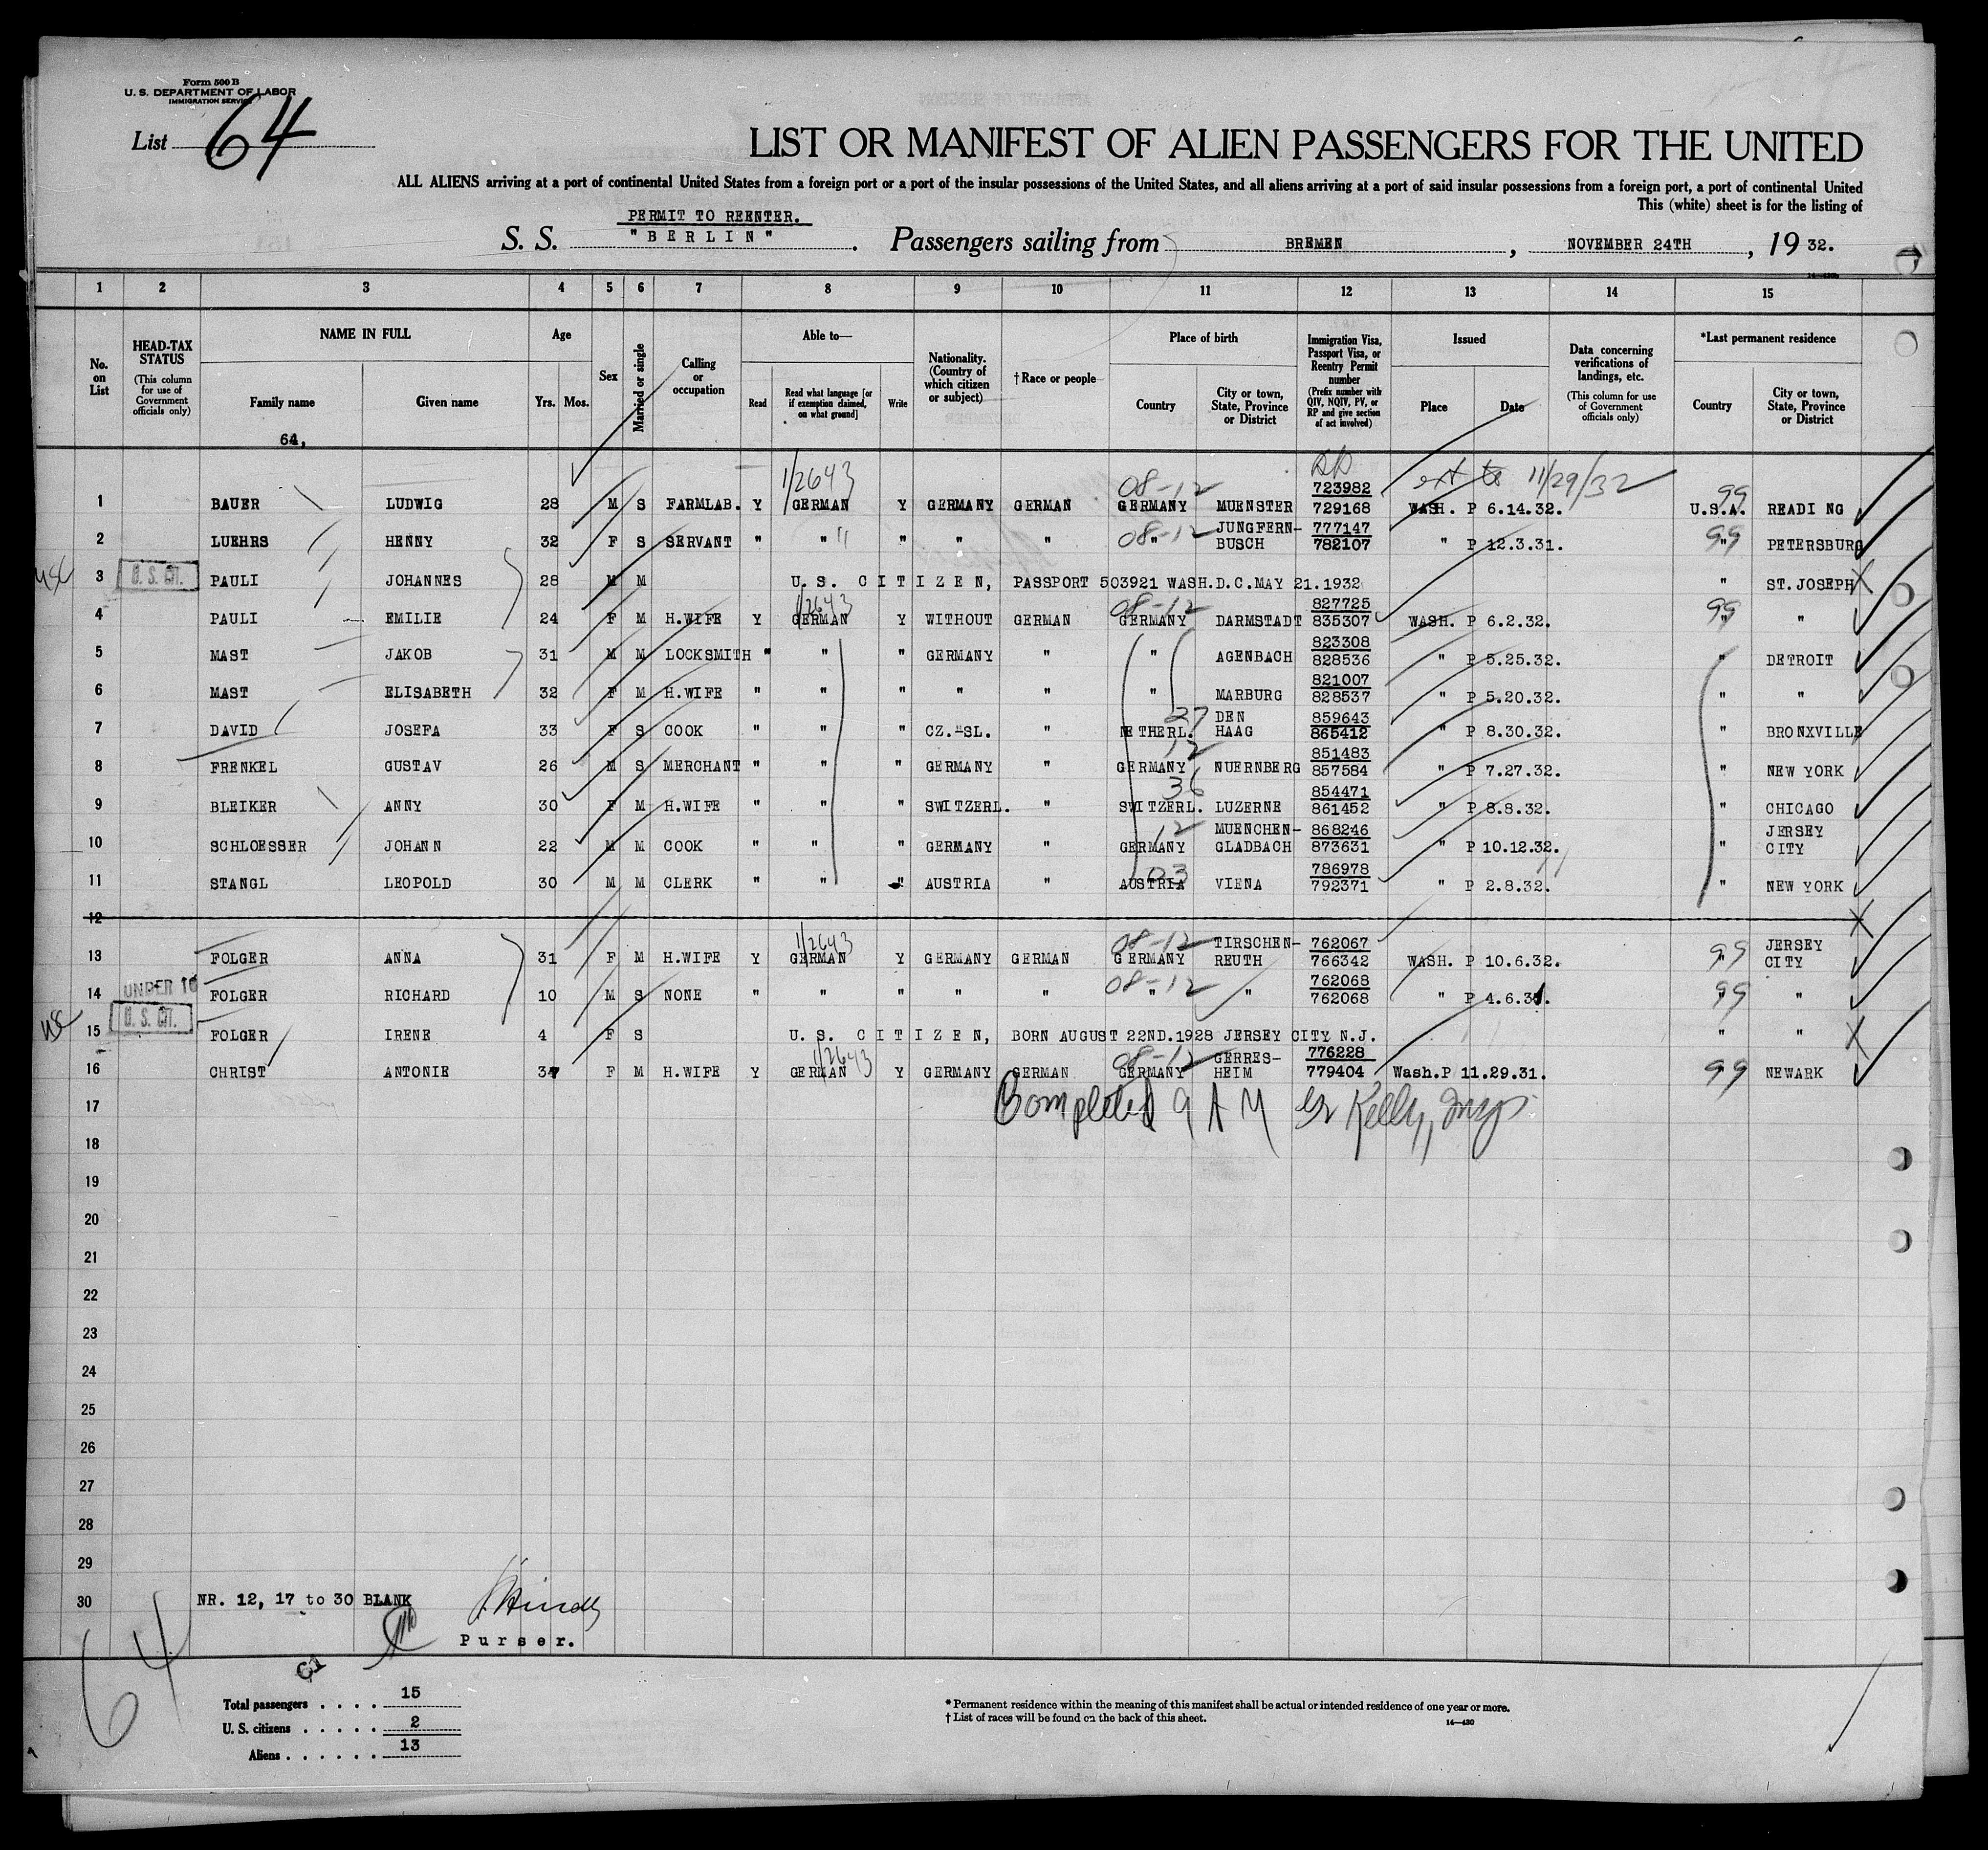 Form 500 B
U. S. DEPARTMENT OF LABOR
IMMIGRATION SERVICE
List 64
LIST OR MANIFEST OF ALIEN PASSENGERS FOR THE UNITED
ALL ALIENS arriving at a port of continental United States from a foreign port or a port of the insular possessions of the United States, and all aliens arriving at a port of said insular possessions from a foreign port, a port of continental United
This (white) sheet is for the listing of
PERMIT TO REENTER.
S. S. "BERLIN". Passengers sailing from BREMEN, NOVEMBER 24TH, 19 32.
1 2 3 4 5 6 7 8 9 10 11 12 13 14 15
No. on List
HEAD-TAX STATUS (This column for use of Government officials only)
NAME IN FULL
Family name Given name
64,
Age
Yrs. Mos.
Sex
Married or single
Calling or occupation
Able to—
Read Read what language [or if exemption claimed, on what ground] Write
Nationality. (Country of which citizen or subject)
† Race or people
Place of birth
Country City or town, State, Province or District
Immigration Visa, Passport Visa, or Reentry Permit number (Prefix number with QIV, NQIV, PV, or RP and give section of act involved)
Issued
Place Date
Data concerning verifications of landings, etc. (This column for use of Government officials only)
*Last permanent residence
Country City or town, State, Province or District
1/2643 08-12 ext to 11/29/32 99
1 BAUER LUDWIG 28 M S FARMLAB. Y GERMAN Y GERMANY GERMAN GERMANY MUENSTER 723982 729168 WASH. P 6.14.32. U.S.A. READING
2 LUEHRS HENNY 32 F S SERVANT " " " " " 08-12 " JUNGFERN-BUSCH 777147 782107 " P 12.3.31. 99 " PETERSBURG
USC U. S. CIT. 3 PAULI JOHANNES 28 M M U. S. CITIZEN, PASSPORT 503921 WASH.D.C.MAY 21.1932 " ST.JOSEPH
1/2643 08-12 99
4 PAULI EMILIE 24 F M H.WIFE Y GERMAN Y WITHOUT GERMAN GERMANY DARMSTADT 827725 835307 WASH. P 6.2.32. " "
5 MAST JAKOB 31 M M LOCKSMITH " " " GERMANY " " AGENBACH 823308 828536 " P 5.25.32. " DETROIT
6 MAST ELISABETH 32 F M H.WIFE " " " " " " MARBURG 821007 828537 " P 5.20.32. " "
7 DAVID JOSEFA 33 F S COOK " " " CZ.-SL. " 27 NETHERL. DEN HAAG 859643 865412 " P 8.30.32. " BRONXVILLE
8 FRENKEL GUSTAV 26 M S MERCHANT " " " GERMANY " 12 GERMANY NUERNBERG 851483 857584 " P 7.27.32. " NEW YORK
9 BLEIKER ANNY 30 F M H.WIFE " " " SWITZERL. " 36 SWITZERL. LUZERNE 854471 861452 " P 8.8.32. " CHICAGO
10 SCHLOESSER JOHANN 22 M M COOK " " " GERMANY " 12 GERMANY MUENCHEN-GLADBACH 868246 873631 " P 10.12.32. " JERSEY CITY
11 STANGL LEOPOLD 30 M M CLERK " " " AUSTRIA " 03 AUSTRIA VIENA 786978 792371 " P 2.8.32. " NEW YORK
12
1/2643 08-12 99
13 FOLGER ANNA 31 F M H.WIFE Y GERMAN Y GERMANY GERMAN GERMANY TIRSCHEN-REUTH 762067 766342 WASH. P 10.6.32. " JERSEY CITY
UNDER 16
14 FOLGER RICHARD 10 M S NONE " " " " " 08-12 " " 762068 762068 " P 4.6.31. 99 " "
USC U. S. CIT. 15 FOLGER IRENE 4 F S U. S. CITIZEN, BORN AUGUST 22ND.1928 JERSEY CITY N.J. " "
1/2643 08-12
16 CHRIST ANTONIE 37 F M H.WIFE Y GERMAN Y GERMANY GERMAN GERMANY GERRES-HEIM 776228 779404 Wash.P 11.29.31. 99 NEWARK
17 Completed 9 AM Kelly, Insp
18
19
20
21
22
23
24
25
26
27
28
29
30 NR. 12, 17 to 30 BLANK
Purser.
64
Total passengers . . . . 15
U. S. citizens . . . . . 2
Aliens . . . . . . 13
* Permanent residence within the meaning of this manifest shall be actual or intended residence of one year or more.
† List of races will be found on the back of this sheet.
14—430